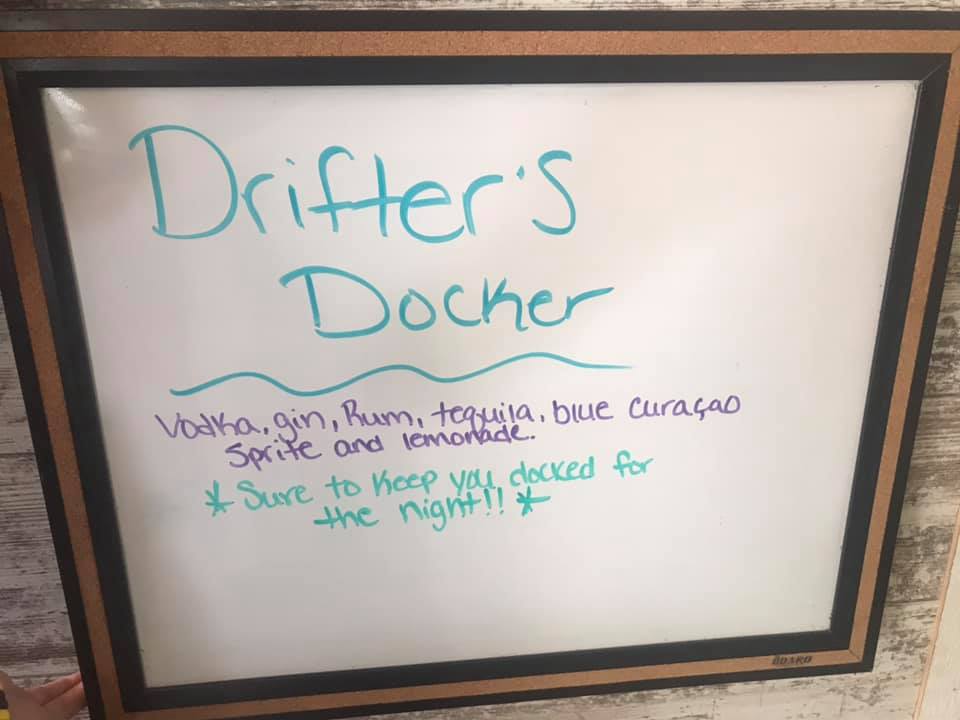 Drifter's
Docker
Vodka, gin, Rum, tequila, blue curaçao
Sprite and lemonade.
* Sure to keep you docked for
the night!! *
BOARD